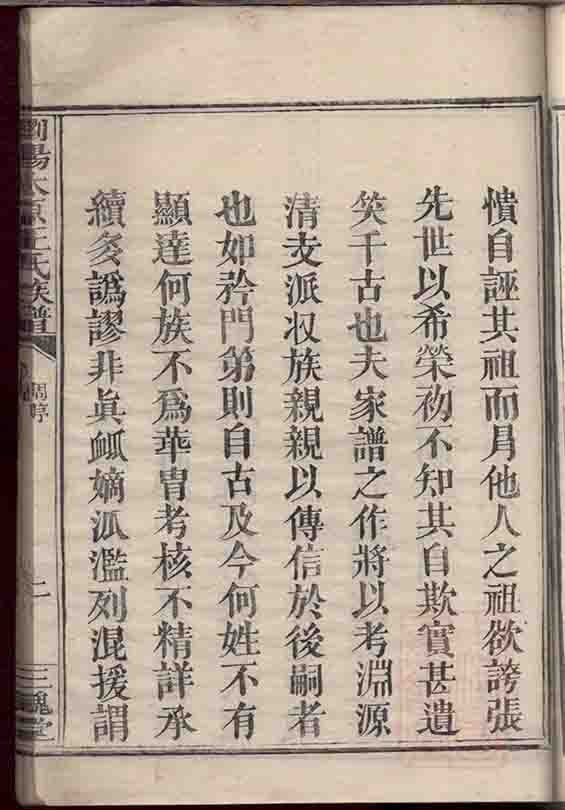 憒自誣其祖而冐他人之祖欲誇張
先世以希榮初不知其自欺實甚遺
笑千古也夫家譜之作將以考淵源
清支派収族親親以傳信於後嗣者
也如矜門第則自古及今何姓不有
顯達何族不爲華胄考核不精詳承
續多譌謬非眞瓞嫡派濫列混援謂
瀏陽太原王氏族譜
二
三槐堂